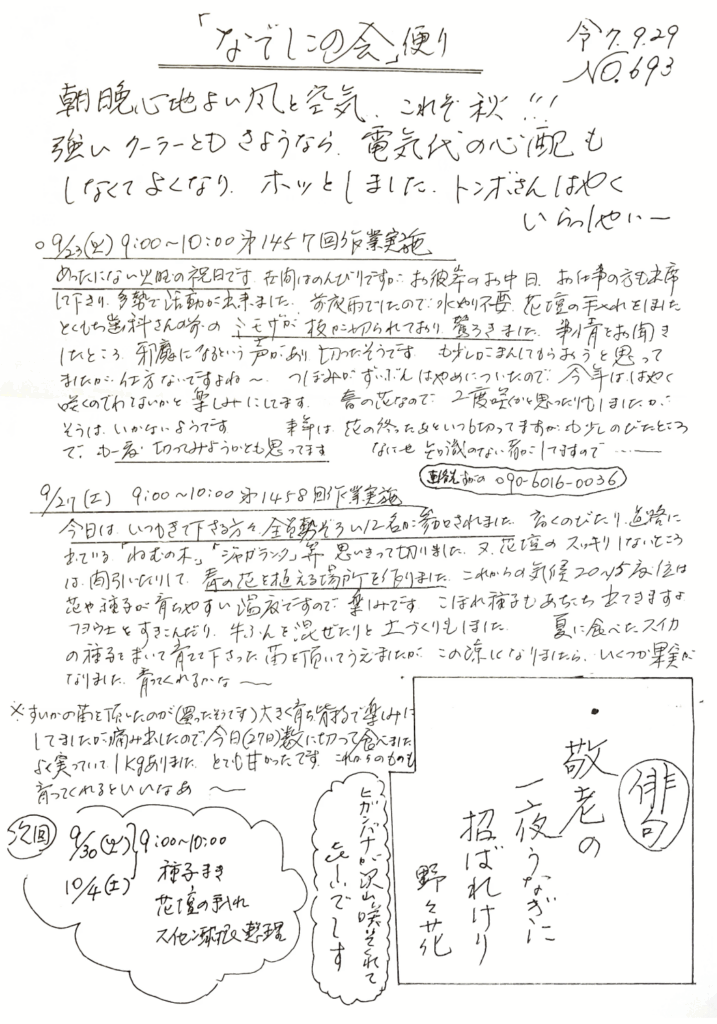 「なでしこの会」便り
令7.9.29
NO.693
朝晩心地よい風と空気、これぞ秋!!!
強いクーラーともさようなら、電気代の心配も
しなくてよくなり、ホッとしました、トンボさんはやく
いらっしゃいー
○9/23(火) 9:00〜10:00 第1457回作業実施
めったにない火曜の祝日です、世間はのんびりですが、お彼岸のお中日、お仕事の方も出席
して下さり、多勢で活動が出来ました、前夜雨でしたので、水やり不要、花壇の手入れをしました
とくもち歯科さんの前のミモザが枝が切られており、驚ろきました、事情をお聞き
したところ、邪魔になるという声があり切ったそうです も少しがまんしてもらおうと思って
ましたが、仕方ないですよね〜、つぼみがずいぶんはやめについたので、今年ははやく
咲くのではないかと楽しみにしてます、春の花なので、2度咲くかと思ったりもしましたが、
そうは、いかないようです 来年は、花の終ったあといつも切ってますが、も少しのびたところ
で、も一度切ってみようかとも思ってます なにせ知識のない者がしてますので‥‥‥
090-6016-0036
9/27(土) 9:00〜10:00 第1458回作業実施
今日は、いつもきて下さる方々、全員勢ぞろい12名が参加されました、高くのびたり、道路に
出ている「ねむの木」「ジャカランタ」等 思いきって切りました、又、花壇のスッキリしないところ
は、間引いたりして、春の花を植える場所を作りました、これからの気候20〜15度位は
花や種子が育ちやすい温度ですので、楽しみです、こぼれ種子もあちこち出てきますよ
フヨウ土をすきこんだり、牛ふんを混ぜたりと土づくりもしました、 夏に食べたスイカ
の種子をまいて育てて下さった苗を頂いてうえましたが、この涼しくなりましたら、いくつか果実が
なりました、育ってくれるかな〜
※すいかの苗を頂したのが(買ったそうです)大きく育ち皆さるで楽しみに
してましたが痛み出したので今日(27日)数に切って食べました
よく実っていて、1kgありました、とても甘かったです、これからのものも
育ってくれるといいなあ〜
次回
9/30(火)
10/4(土)
9:00〜10:00
種子まき
花壇の手入れ
スイセン球根整理
ヒガンバナが沢山咲いてくれて
うれしいです
俳句
敬老の
一夜うなぎに
招ばれけり
野々花